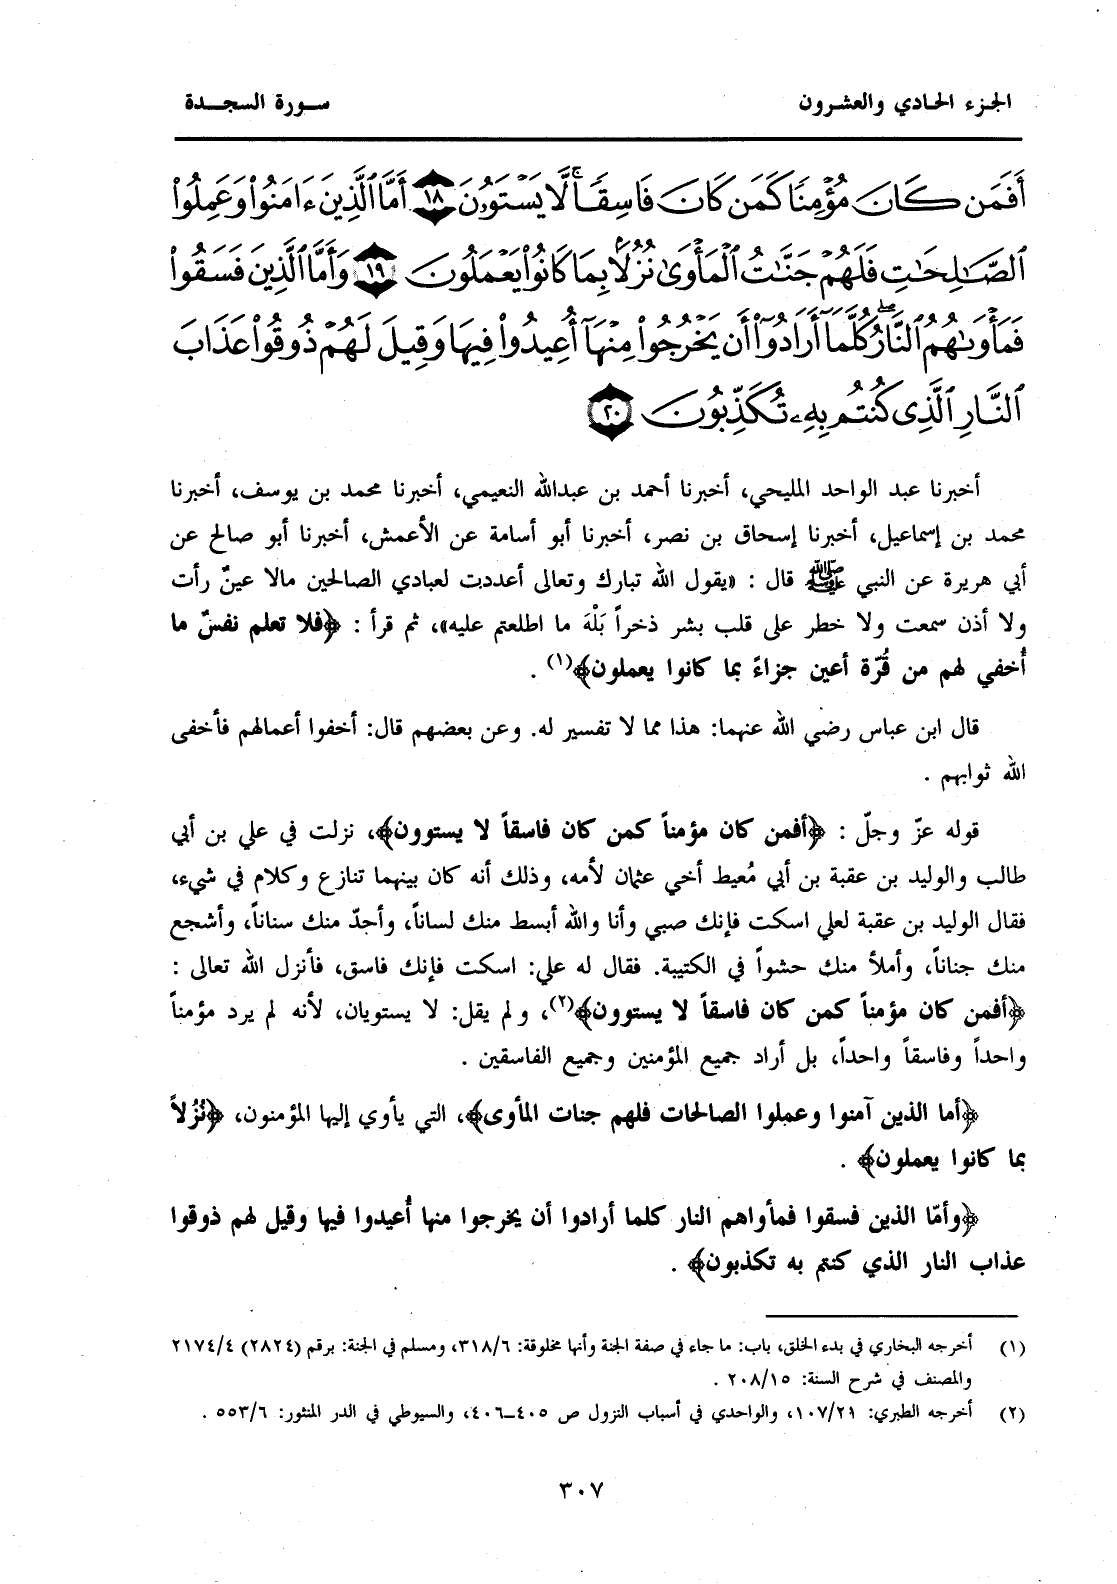 الجزء الحادي والعشرون
سورة السجدة
أَفَمَن كَانَ مُؤْمِنًا كَمَن كَانَ فَاسِقًا ۚ لَّا يَسْتَوُۥنَ ١٨ أَمَّا ٱلَّذِينَ ءَامَنُوا۟ وَعَمِلُوا۟
ٱلصَّـٰلِحَـٰتِ فَلَهُمْ جَنَّـٰتُ ٱلْمَأْوَىٰ نُزُلًۢا بِمَا كَانُوا۟ يَعْمَلُونَ ١٩ وَأَمَّا ٱلَّذِينَ فَسَقُوا۟
فَمَأْوَىٰهُمُ ٱلنَّارُ ۖ كُلَّمَآ أَرَادُوٓا۟ أَن يَخْرُجُوا۟ مِنْهَآ أُعِيدُوا۟ فِيهَا وَقِيلَ لَهُمْ ذُوقُوا۟ عَذَابَ
ٱلنَّارِ ٱلَّذِى كُنتُم بِهِۦ تُكَذِّبُونَ ٢٠
أخبرنا عبد الواحد المليحي، أخبرنا أحمد بن عبدالله النعيمي، أخبرنا محمد بن يوسف، أخبرنا
محمد بن إسماعيل، أخبرنا إسحاق بن نصر، أخبرنا أبو أسامة عن الأعمش، أخبرنا أبو صالح عن
أبي هريرة عن النبي ﷺ قال : «يقول الله تبارك وتعالى أعددت لعبادي الصالحين مالا عينٌ رأت
ولا أذن سمعت ولا خطر على قلب بشر ذخراً بَلْهَ ما اطلعتم عليه»، ثم قرأ : ﴿فلا تعلم نفسٌ ما
أُخفي لهم من قُرّة أعين جزاءً بما كانوا يعملون﴾(١) .
قال ابن عباس رضي الله عنهما: هذا مما لا تفسير له. وعن بعضهم قال: أخفوا أعمالهم فأخفى
الله ثوابهم .
قوله عزّ وجلّ : ﴿أفمن كان مؤمناً كمن كان فاسقاً لا يستوون﴾، نزلت في علي بن أبي
طالب والوليد بن عقبة بن أبي مُعيط أخي عثمان لأمه، وذلك أنه كان بينهما تنازع وكلام في شيء،
فقال الوليد بن عقبة لعلي اسكت فإنك صبي وأنا والله أبسط منك لساناً، وأحدّ منك سناناً، وأشجع
منك جناناً، وأملأ منك حشواً في الكتيبة. فقال له علي: اسكت فإنك فاسق، فأنزل الله تعالى :
﴿أفمن كان مؤمناً كمن كان فاسقاً لا يستوون﴾(٢)، ولم يقل: لا يستويان، لأنه لم يرد مؤمناً
واحداً وفاسقاً واحداً، بل أراد جميع المؤمنين وجميع الفاسقين .
﴿أما الذين آمنوا وعملوا الصالحات فلهم جنات المأوى﴾، التي يأوي إليها المؤمنون، ﴿نُزُلاً
بما كانوا يعملون﴾ .
﴿وأمّا الذين فسقوا فمأواهم النار كلما أرادوا أن يخرجوا منها أُعيدوا فيها وقيل لهم ذوقوا
عذاب النار الذي كنتم به تكذبون﴾ .
(١) أخرجه البخاري في بدء الخلق، باب: ما جاء في صفة الجنة وأنها مخلوقة: ٣١٨/٦، ومسلم في الجنة: برقم (٢٨٢٤) ٢١٧٤/٤
والمصنف في شرح السنة: ٢٠٨/١٥ .
(٢) أخرجه الطبري: ١٠٧/٢١، والواحدي في أسباب النزول ص ٤٠٥-٤٠٦، والسيوطي في الدر المنثور: ٥٥٣/٦ .
٣٠٧